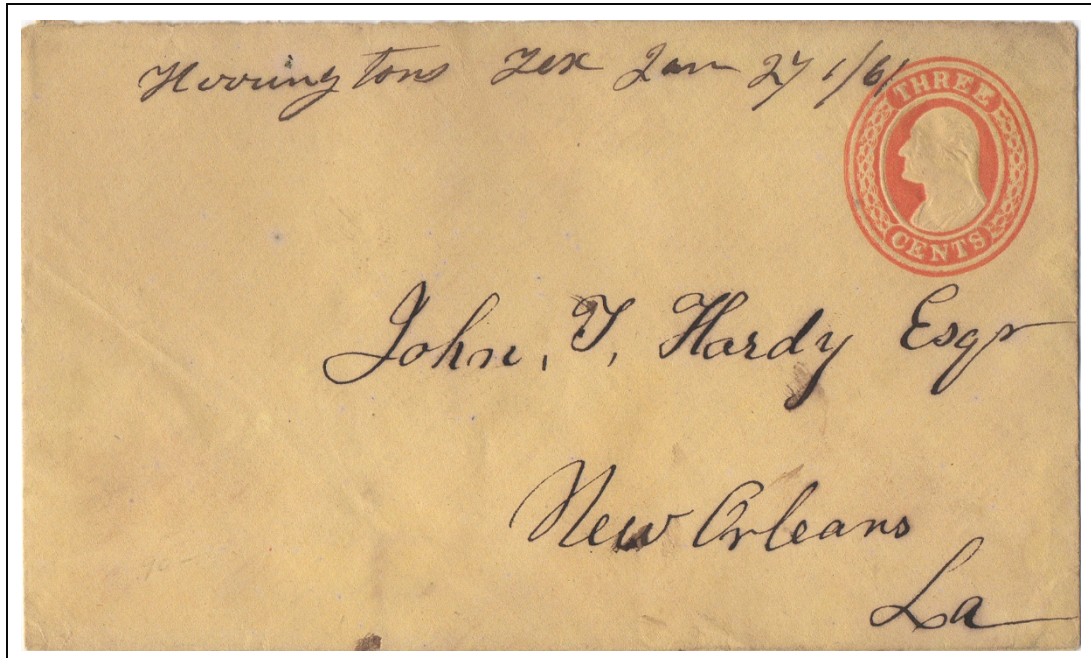 Herrington's Tex Jan 27 1/61
THREE
CENTS
John, T, Hardy Esqr
New Orleans
La